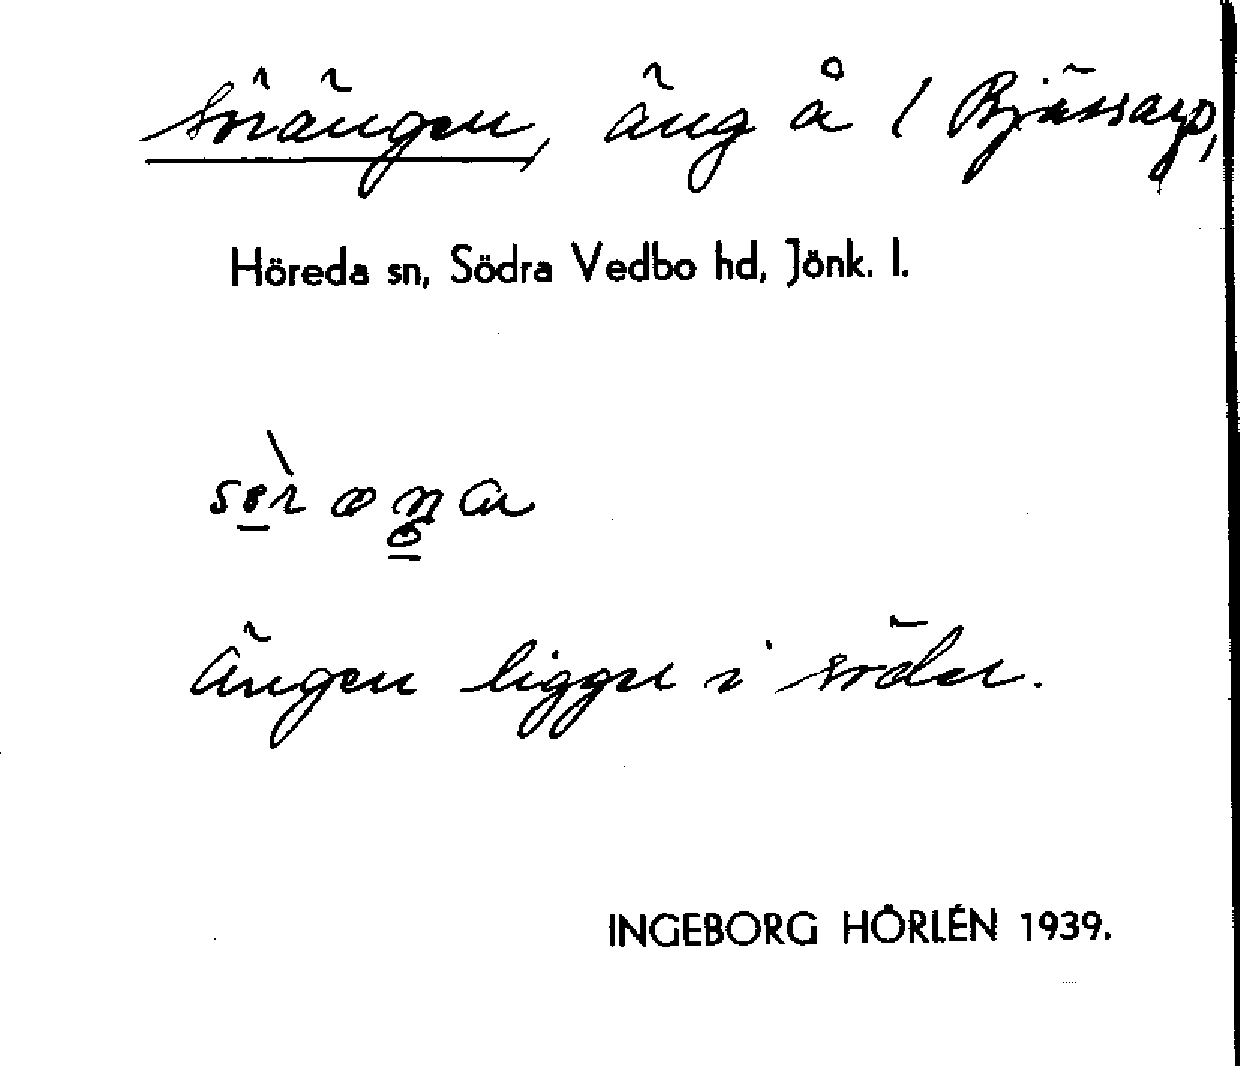 Sörängen, äng å 1 Bjässarp,
Höreda sn, Södra Vedbo hd, Jönk. l.
Ängen ligger i söder.
INGEBORG HÖRLÉN 1939.